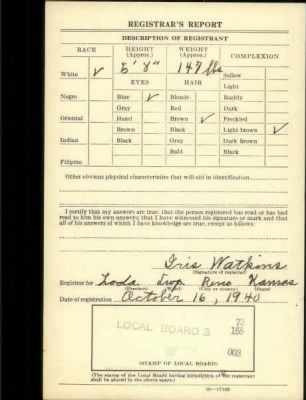 REGISTRAR'S REPORT
DESCRIPTION OF REGISTRANT
RACE HEIGHT (Approx.) WEIGHT (Approx.) COMPLEXION
White ✓ 5' 8" 147 lbs Sallow
EYES HAIR Light
Negro Blue ✓ Blonde Ruddy
Gray Red Dark
Oriental Hazel Brown ✓ Freckled
Brown Black Light brown ✓
Indian Black Gray Dark brown
Bald Black
Filipino
Other obvious physical characteristics that will aid in identification
I certify that my answers are true; that the person registered has read or has had
read to him his own answers; that I have witnessed his signature or mark and that
all of his answers of which I have knowledge are true, except as follows:
Iris Watkins
(Signature of registrar)
Registrar for Loda twp. Reno Kansas
(Precinct) (Ward) (City or county) (State)
Date of registration October 16, 1940
LOCAL BOARD 3 73
155
003
STAMP OF LOCAL BOARD
(The stamp of the Local Board having jurisdiction of the registrant
shall be placed in the above space.)